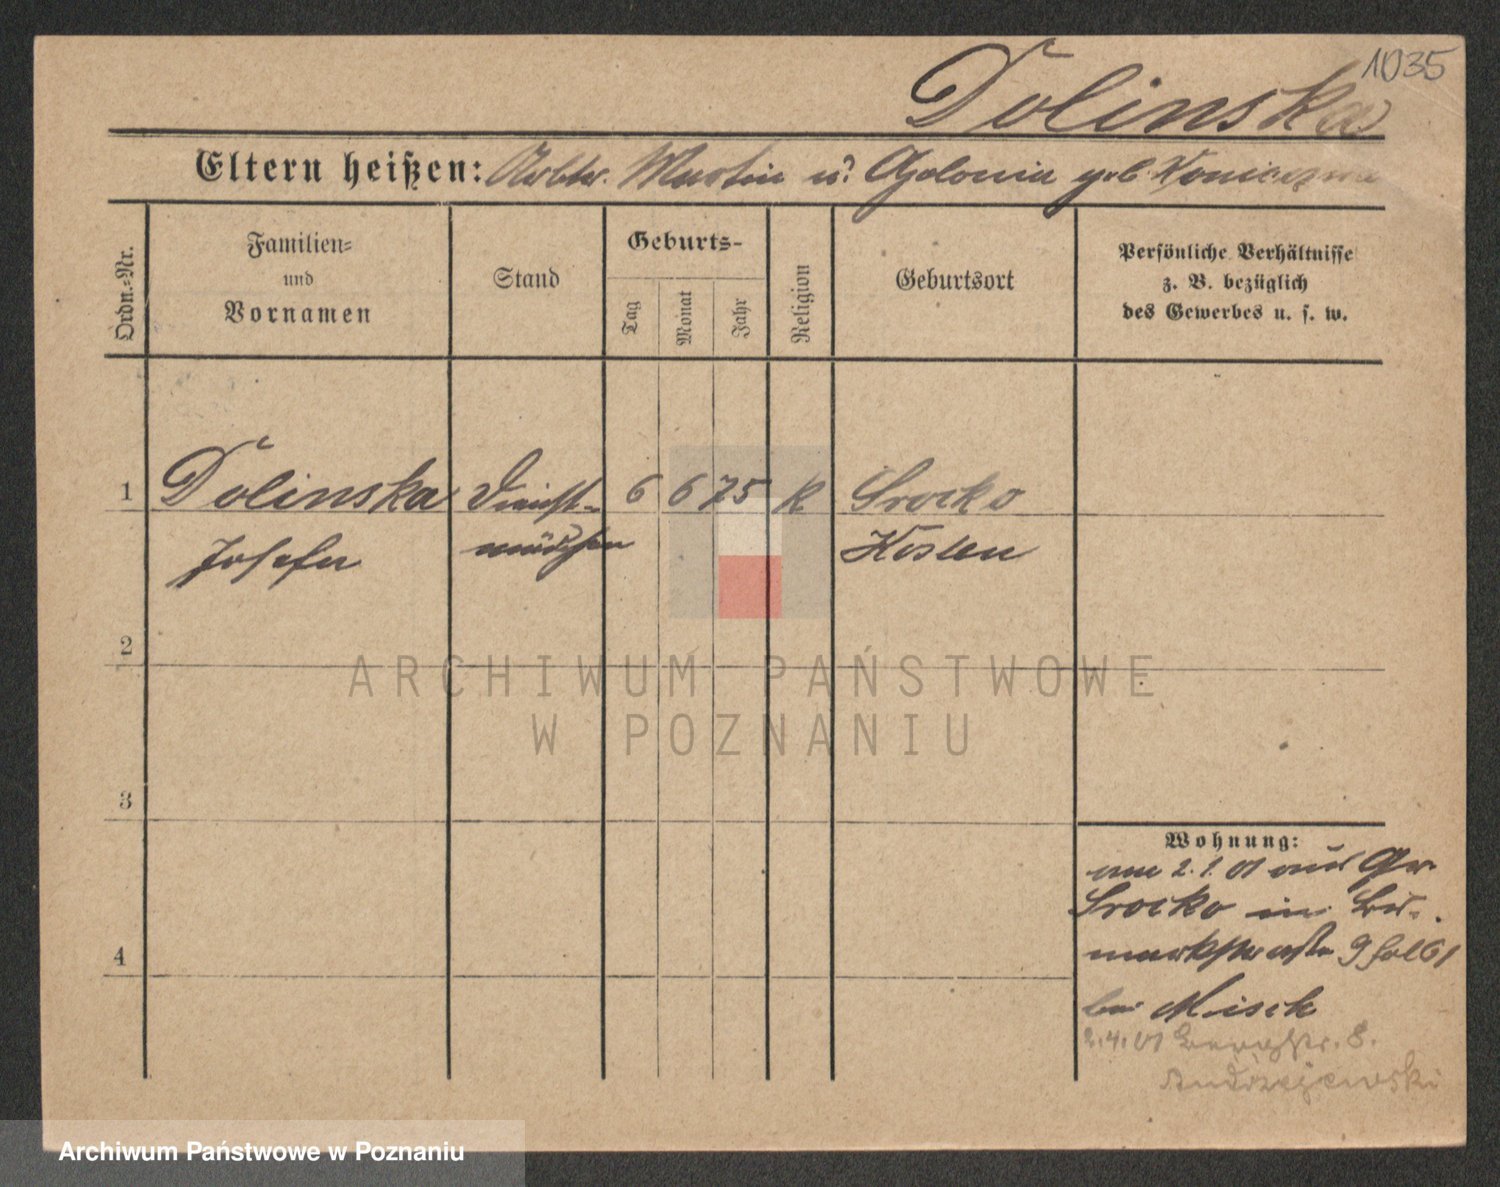 1035
Dolinska
Eltern heißen: Arbtr. Martin u. Apolonia geb.
Ordn.-Nr.
Familien-
und
Vornamen
Stand
Geburts-
Tag
Monat
Jahr
Religion
Geburtsort
Persönliche Verhältnisse
z. B. bezüglich
des Gewerbes u. s. w.
1 Dolinska Dienst- 6 6 75 K Srocko
Josefa mädchen Kosten
2
ARCHIWUM PAŃSTWOWE
W POZNANIU
3
4
Wohnung:
am 2.1.01 aus Gr.
Srocko in
9
bei Misek
2.4.01 Bergstr. 8.
Andrzejewski
Archiwum Państwowe w Poznaniu